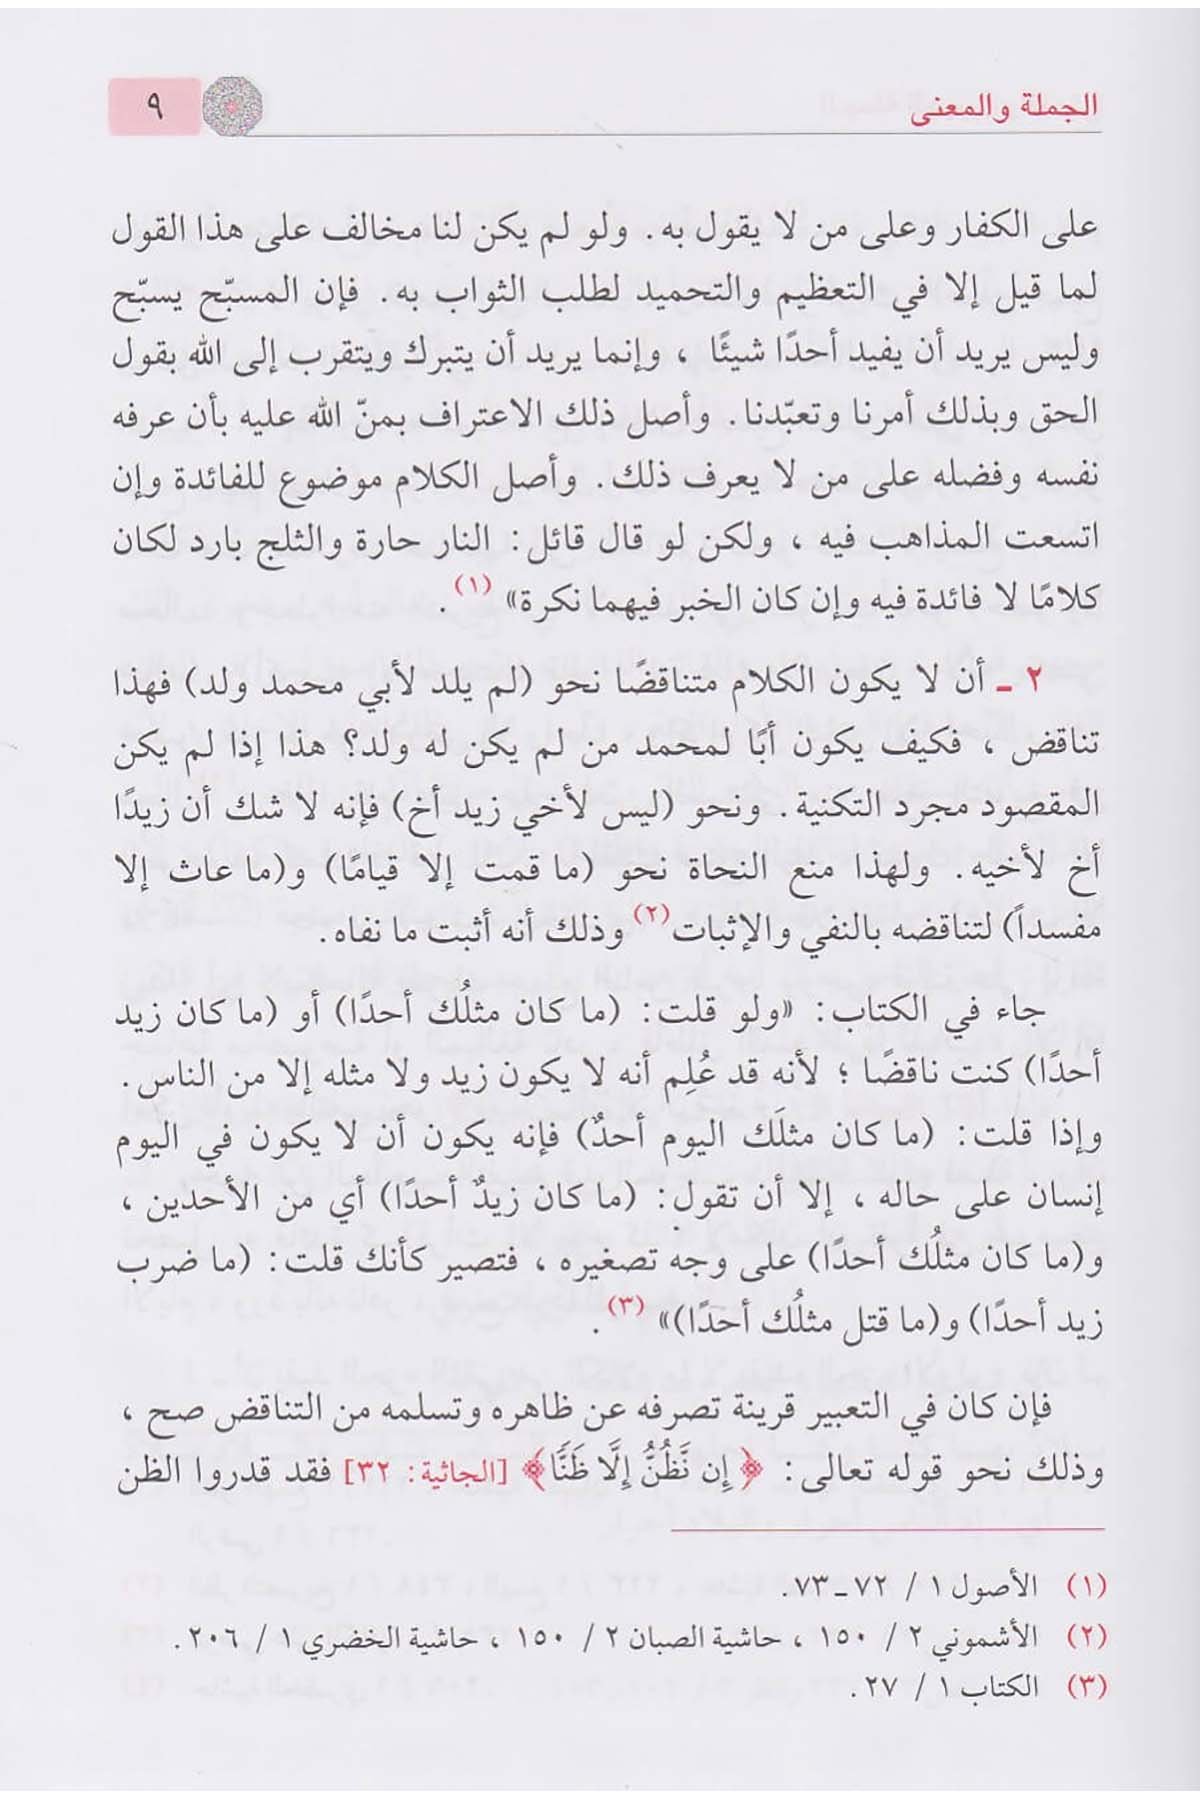 الجملة والمعنى
٩
على الكفار وعلى من لا يقول به. ولو لم يكن لنا مخالف على هذا القول
لما قيل إلا في التعظيم والتحميد لطلب الثواب به. فإن المسبّح يسبّح
وليس يريد أن يفيد أحدًا شيئًا ، وإنما يريد أن يتبرك ويتقرب إلى الله بقول
الحق وبذلك أمرنا وتعبّدنا. وأصل ذلك الاعتراف بمنّ الله عليه بأن عرفه
نفسه وفضله على من لا يعرف ذلك. وأصل الكلام موضوع للفائدة وإن
اتسعت المذاهب فيه ، ولكن لو قال قائل: النار حارة والثلج بارد لكان
كلامًا لا فائدة فيه وإن كان الخبر فيهما نكرة» (١).
٢ ـ أن لا يكون الكلام متناقضًا نحو (لم يلد لأبي محمد ولد) فهذا
تناقض ، فكيف يكون أبًا لمحمد من لم يكن له ولد؟ هذا إذا لم يكن
المقصود مجرد التكنية. ونحو (ليس لأخي زيد أخ) فإنه لا شك أن زيدًا
أخ لأخيه. ولهذا منع النحاة نحو (ما قمت إلا قيامًا) و(ما عاث إلا
مفسداً) لتناقضه بالنفي والإثبات(٢) وذلك أنه أثبت ما نفاه.
جاء في الكتاب: «ولو قلت: (ما كان مثلُك أحدًا) أو (ما كان زيد
أحدًا) كنت ناقضًا ؛ لأنه قد عُلِم أنه لا يكون زيد ولا مثله إلا من الناس.
وإذا قلت: (ما كان مثلَك اليوم أحدٌ) فإنه يكون أن لا يكون في اليوم
إنسان على حاله ، إلا أن تقول: (ما كان زيدٌ أحدًا) أي من الأحدين ،
و(ما كان مثلُك أحدًا) على وجه تصغيره ، فتصير كأنك قلت: (ما ضرب
زيد أحدًا) و(ما قتل مثلُك أحدًا)» (٣).
فإن كان في التعبير قرينة تصرفه عن ظاهره وتسلمه من التناقض صح ،
وذلك نحو قوله تعالى: ﴿إِن نَّظُنُّ إِلَّا ظَنًّا﴾ [الجاثية: ٣٢] فقد قدروا الظن
(١) الأصول ١ / ٧٢ ـ ٧٣.
(٢) الأشموني ٢ / ١٥٠ ، حاشية الصبان ٢ / ١٥٠ ، حاشية الخضري ١ / ٢٠٦.
(٣) الكتاب ١ / ٢٧.